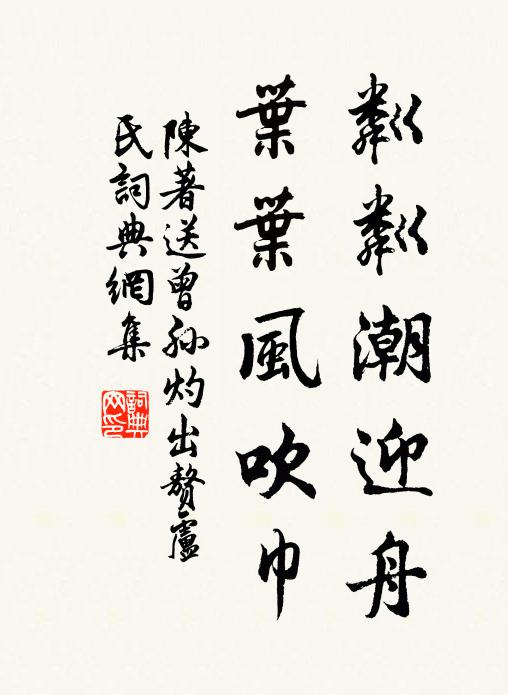 粼粼潮迎舟
葉葉風吹巾
陳著送曾孙灼出贅盧
氏詞典網集
詞典网印